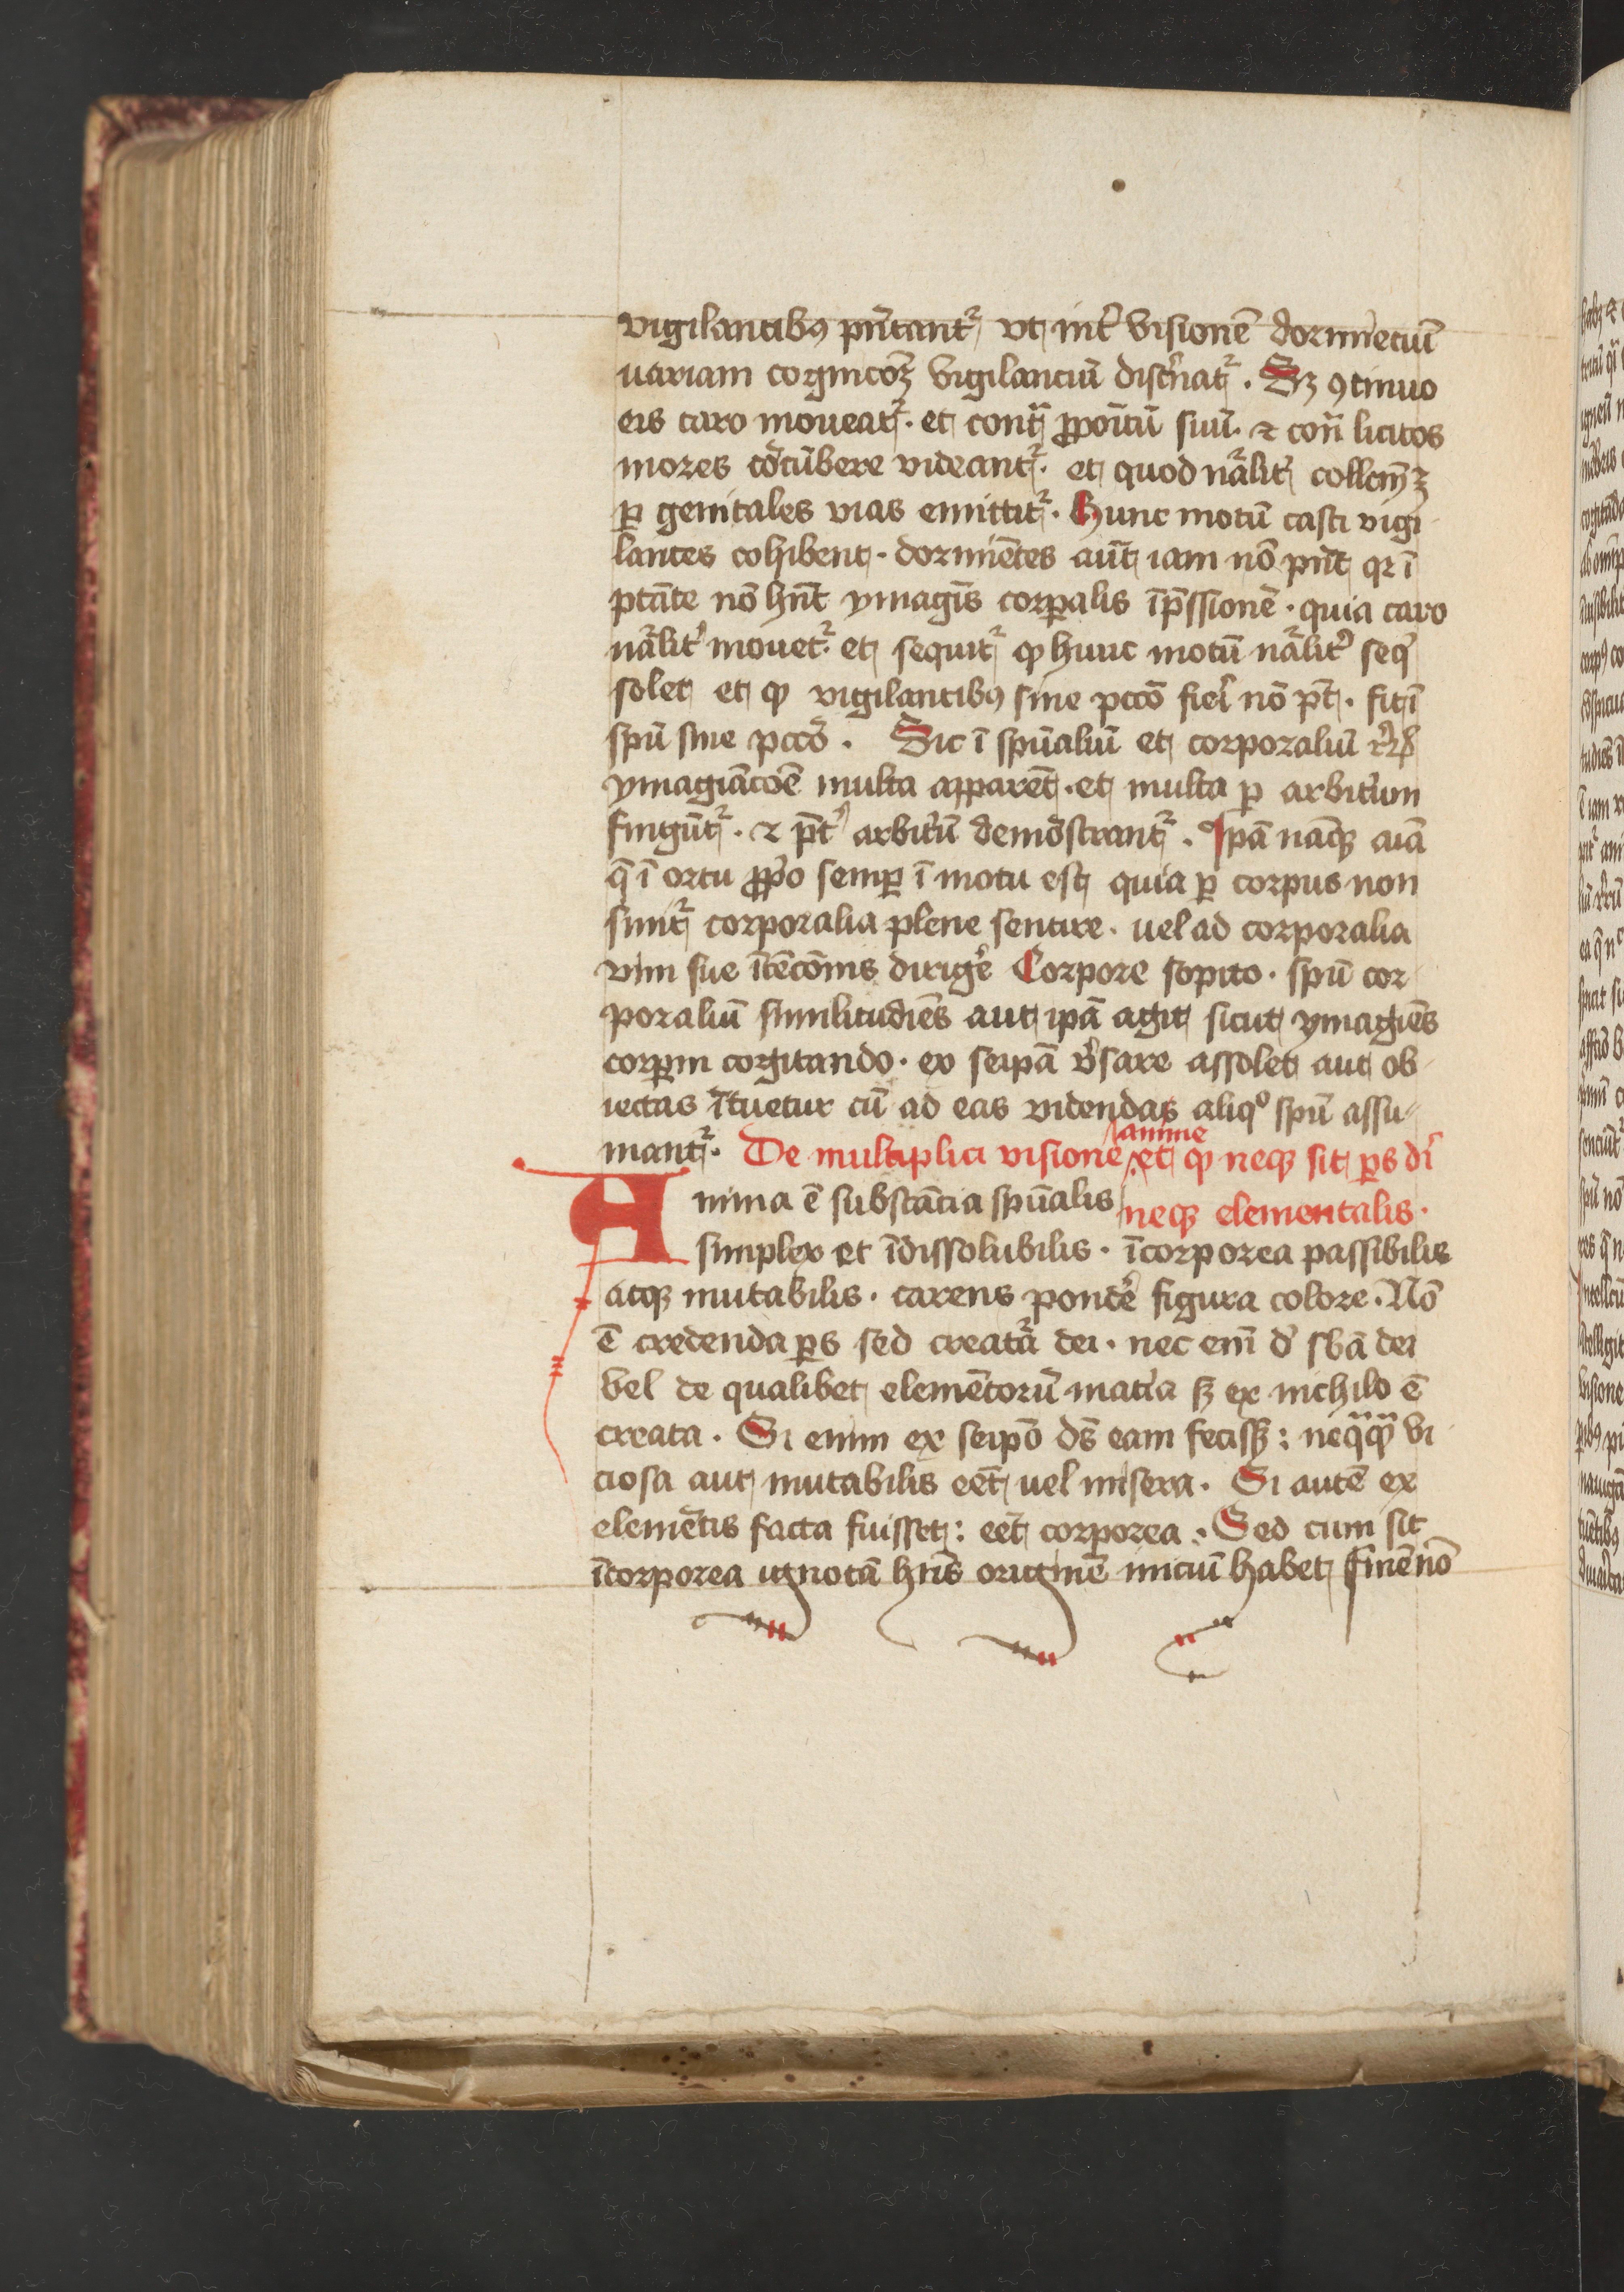 vigilantibꝯ pn̄tantᷣ vt int᷑ visionē dormiētiū
uariam cogitacōꝫ vigilanciū disc᷑natᷣ . Sꝫ ꝯtinuo
eis caro moueatᷣ . et contͣ ꝓpoitū suū . ⁊ conͣ licitos
mores cōcūbere videantᷣ . et quod nāliter collectꝫ
ꝑ genitales vias emittitᷣ . Hunc motū casti vigi
lantes cohibent . dormiētes aūt iam nō pn̄t qꝛ ī
ptāte nō hn̄t ymagīs corꝑalis īp̄ssionē . quia caro
nālit᷑ mouetᷣ et sequitᷣ ꝙ hunc motū nālit᷑ seq᷑
solet et ꝙ vigilantibꝯ sine pccō fieri nō pt̄ . fit ī
spū sine pccō . Sic ī spūaliū et corporaliū rerꝝ
ymagiācōe multa apparēt . et multa ꝑ arbitriū
fingūtᷣ . ⁊ pt᷑ arbitriū demōstrantᷣ . Ipā nāqꝫ aīa
q̄ ī ortu ꝓprio semꝑ ī motu est quia ꝑ corpus non
sinitᷣ corporalia plene sentire . uel ad corporalia
vim sue ītēcōnis dirig᷑e Corpore sopito . spū cor
poraliū similitudīes aut ipā agit sicut ymagīes
corꝑum cogitando . ex seipā v᷑sare assolet aut ob
iectas ītuetur cū ad eas videndas aliqͦ spū assu
mantᷣ . De multiplici visione et ꝙ neqꝫ sit ꝑs dī
anime
Anima ē substācia spūalis neqꝫ elementalis .
simplex et īdissolubilis . īcorporea passibilis
atqꝫ mutabilis . carens pond᷑e figura colore . Nō
ē credenda ꝑs sed creatͣa dei . nec enī d᷑ sb̄a dei
vel de qualibet elemētorū mat᷑ia sꝫ ex nichilo ē
creata . Si enim ex seipō ds̄ eam fecissꝫ : neqͣqͣ vi
ciosa aut mutabilis eēt uel misera . Si autē ex
elemētis facta fuisset : eēt corporea . Sed cum sit
īcorporea ignotā hn̄s originē iniciū habet finē nō